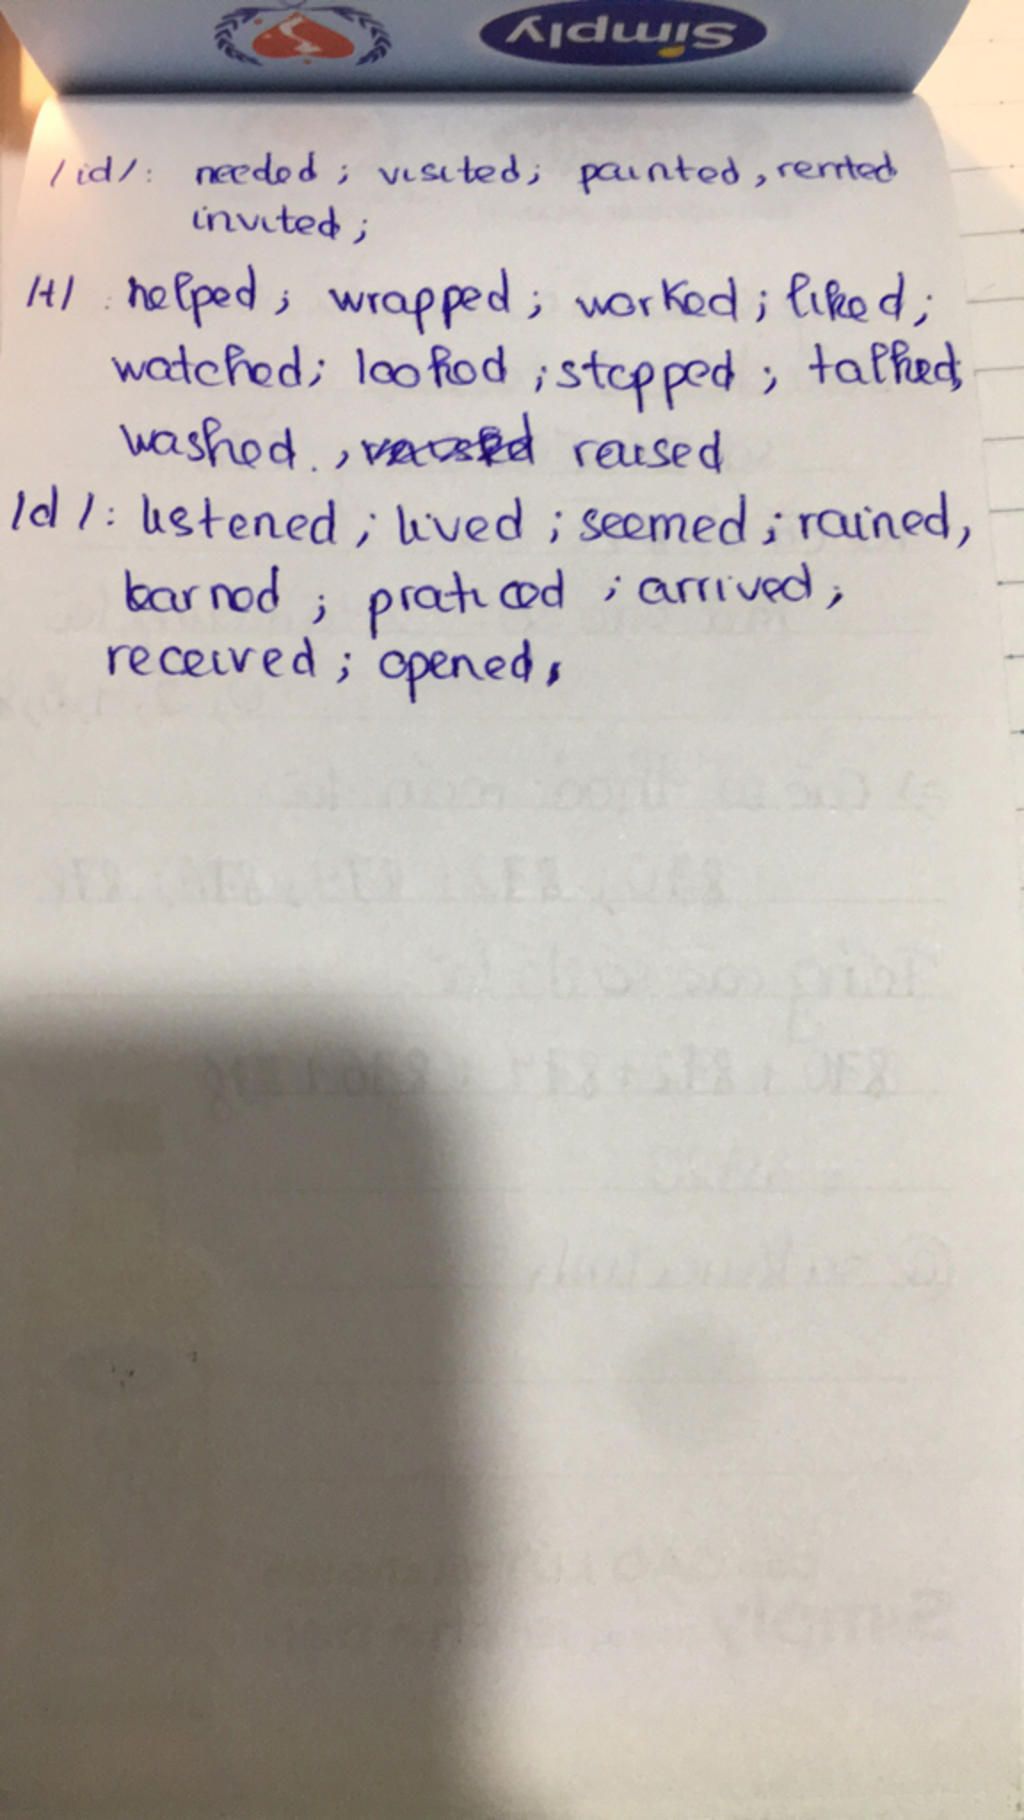 Simply
/id/: needed; visited; painted, rented
invited;
/t/: helped; wrapped; worked; liked;
watched; looked; stopped; talked,
washed., raised
/d/: listened; lived; seemed; rained,
learned; praticed; arrived;
received; opened,